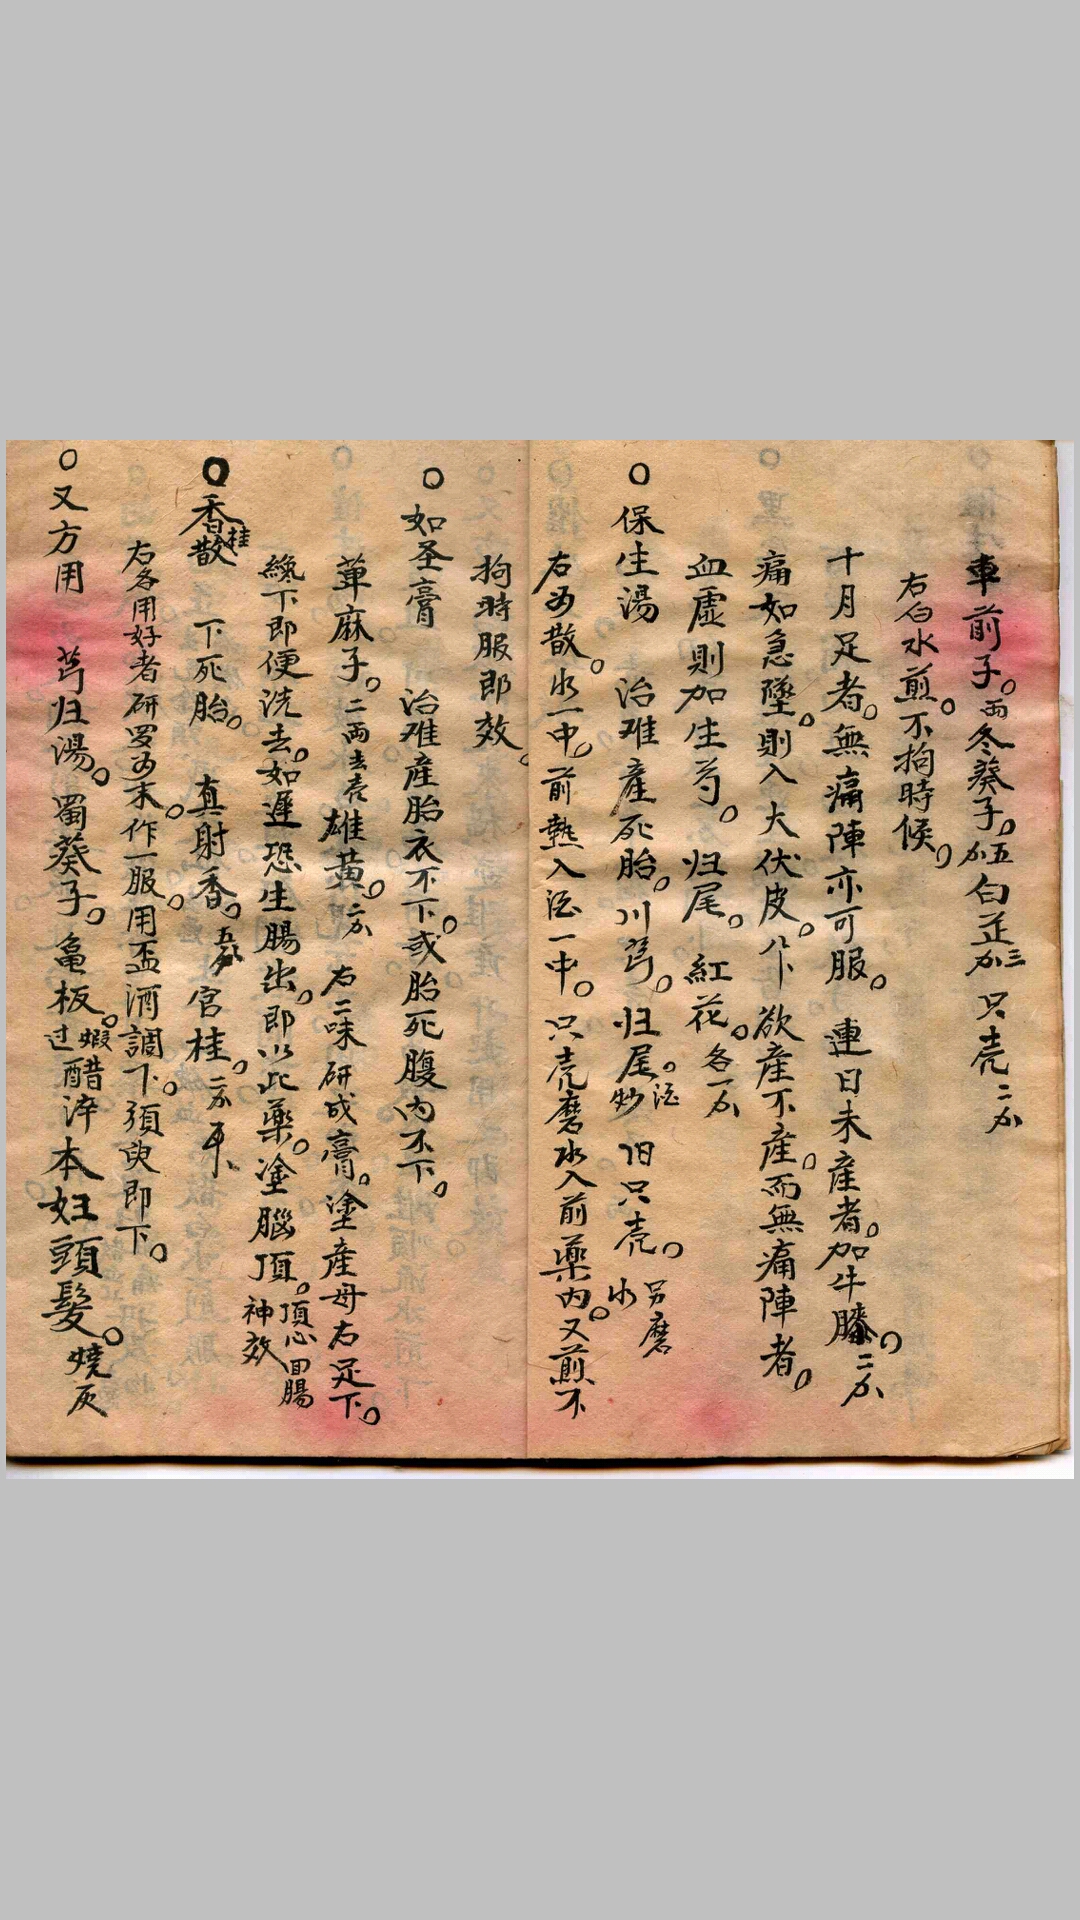 車前子。両冬葵子。五分白芷三分 只壳二分
右白水煎。不拘時候。
十月足者。無痛陣亦可服。 連日未産者。加牛膝。二分
痛如急墜。則入大伏皮。 欲産不産。而無痛陣者。
血虚則加生芍。 归尾。 紅花。各一分
〇保生湯 治难産死胎。川芎。归尾。酒炒 旧只壳。另磨水
右為散。水一中。前熟入酒一中。只壳磨水入前藥内。又煎不
拘時服即效。
〇如圣膏 治难産胎衣不下。或胎死腹内不下。
草麻子。二両去壳雄黄。二分 右二味研成膏。塗産母右足下。
纔下即便洗去。如遲恐生腸出。即以此藥。塗腦頂。頂心回腸神效
〇香桂散 下死胎。 真射香。五分官桂。二分
右各用好者研罗为末。作一服。用盃酒調下。須臾即下。
〇又方用 芎归湯。蜀葵子。亀板。蝦过醋淬本妇頭髮。燒灰